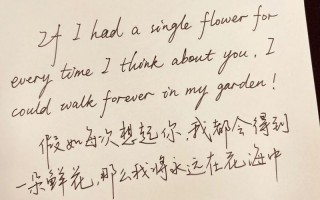 If I had a single flower for
every time I think about you, I
could walk forever in my garden!
假如每次想起你,我都会得到
一朵鲜花,那么我将永远在花海中